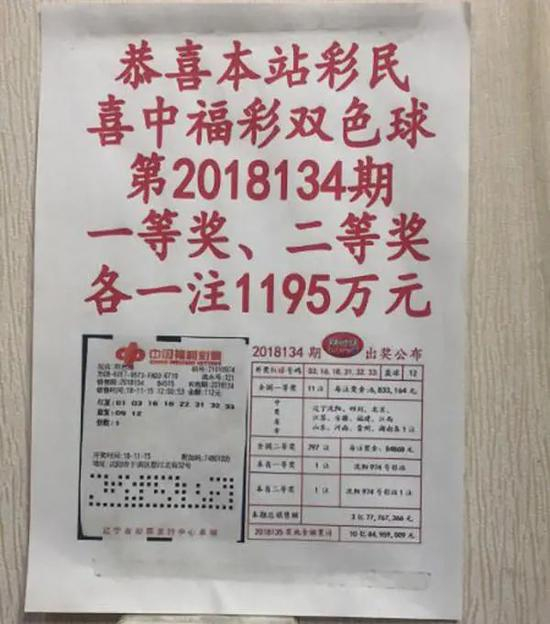 恭喜本站彩民
喜中福彩双色球
第2018134期
一等奖、二等奖
各一注1195万元
中国福利彩票
销售期:2018134 84515 有效期:2018134
销售时间:18-11-15 12:00:53 金额:112元
红复:01 03 16 18 21 31 32 33
蓝复:09 12
倍数:1
开奖时间:18-11-15
辽宁省彩票发行中心承销
2018134 期 出奖公布
开奖红球号码 03, 16, 18, 31, 32, 33 蓝球: 12
全国一等奖 11注 每注奖金:6,833,164 元
中奖省市
辽宁沈阳、四川、北京、
江苏、安徽、福建、江西
山东、河南、贵州、湖南各1注
全国二等奖 297 注 每注奖金: 84868 元
本省一等奖 1 注 沈阳 974 号彩站
本省二等奖 1 注 沈阳 974 号彩站 1 注
本期总销售额 3 亿 77,767,366 元
2018135 10 亿 84,959,009 元